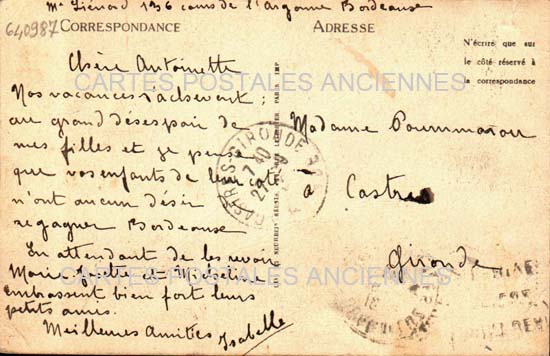 Mr Liénard 196 cours de l'Argonne Bordeaux
640987
CORRESPONDANCE
ADRESSE
N'écrire que sur
le côté réservé à
la correspondance
Chère Antoinette
CARTES POSTALES ANCIENNES
Nos vacances s'achèvent ;
au grand désespoir de
mes filles et je pense
que vos enfants de leur côté
n'ont aucun désir
regagner Bordeaux
En attendant de les revoir
Marie et Miseline
embrassent bien fort leurs
petits amis.
Meilleures Amitiés Isabelle
Madame
à Castres
Gironde
CASTRES-GIRONDE
7 40
CARTES POSTALES ANCIENNES